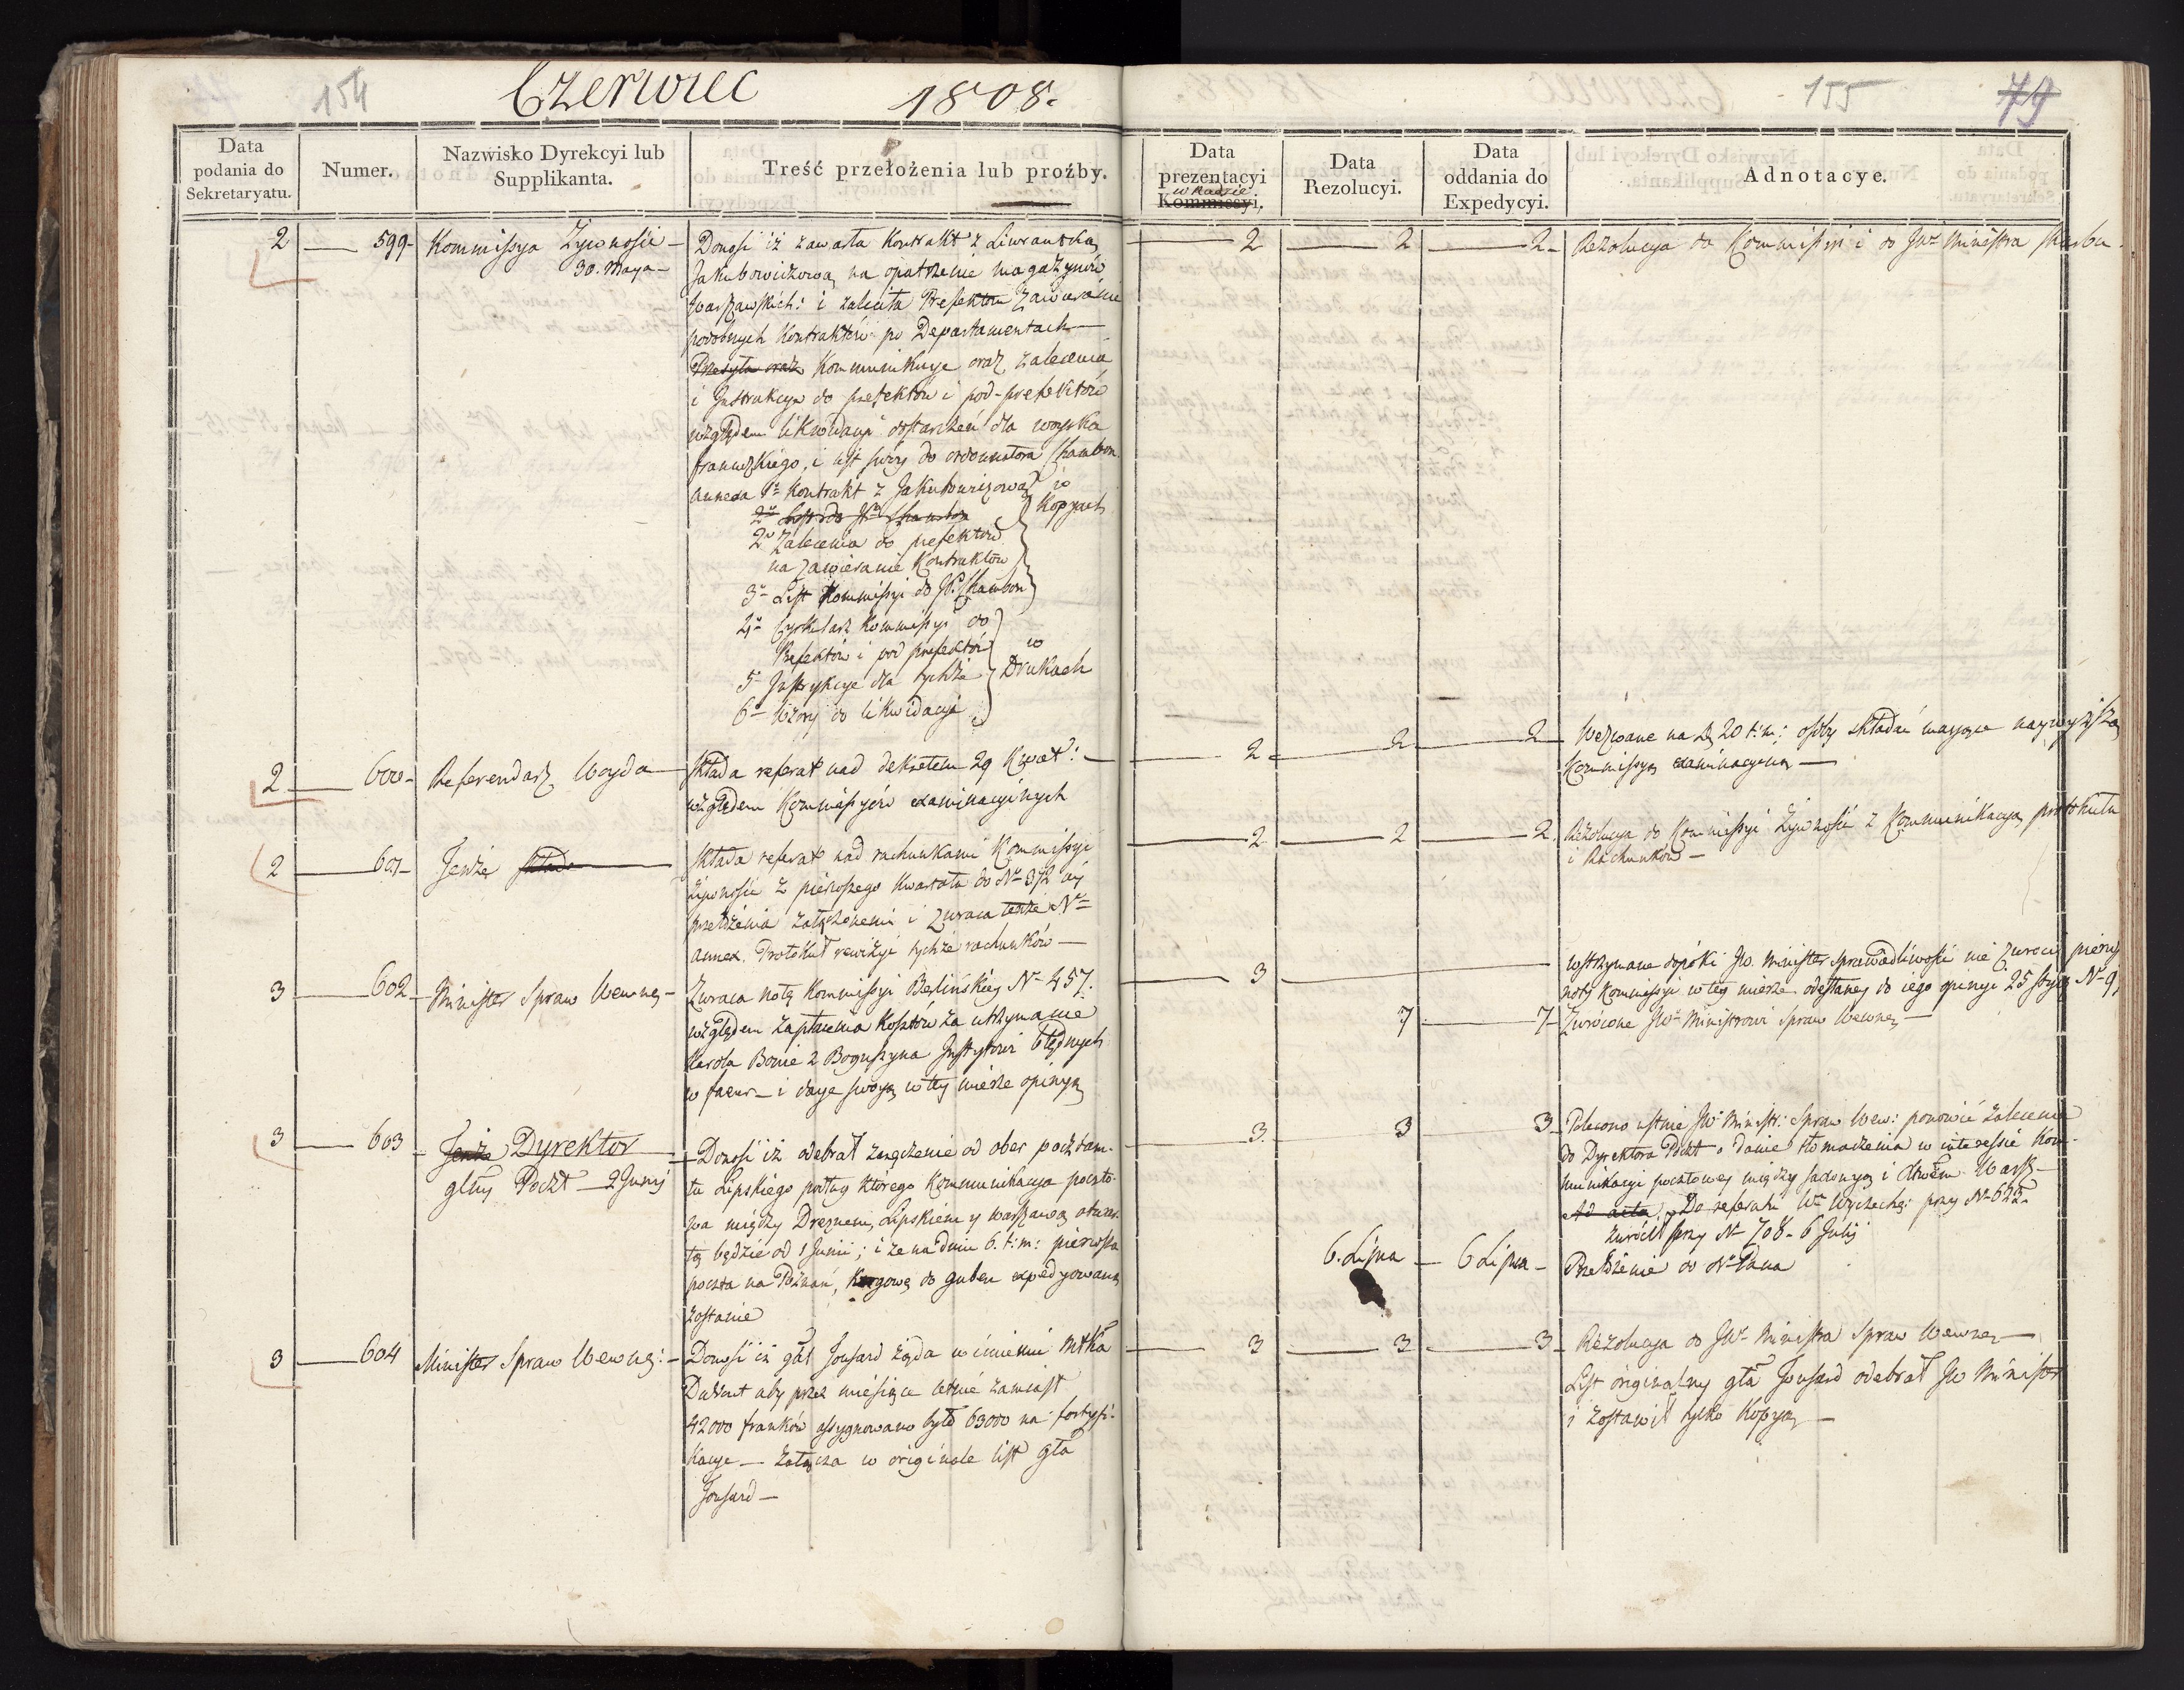 154
Czerwiec 1808.
155
79
Data podania do Sekretaryatu.
Numer.
Nazwisko Dyrekcyi lub Supplikanta.
Treść przełożenia lub proźby.
Data prezentacyi w Radzie Kommissyi.
Data Rezolucyi.
Data oddania do Expedycyi.
Adnotacye.
2 599 Kommissya Żywności
30. Maya
Donosi iż zawarła Kontrakt z Liwrantką
Jakubowiczową na opatrzenie magazynów
Warszawskich: i zaleciła Prefektom zawieranie
podobnych Kontraktów po Departamentach
Przesyła oraz Kommunikuje oraz zalecenia
i Instrukcye do prefektów i pod-prefektów
względem likwidacyi dostarczeń dla woyska
francuzkiego, i list swóy do ordonnatora Chambon
annexa 1º Kontrakt z Jakubowiczową
2º Zalecenia do prefektów
na zawieranie Kontraktów
3º List Kommissyi do JP. Chambon
w Kopyach
4º Cyrkularz Kommissyi do
Prefektów i pod prefektów
5º Instrykcye dla tychże
6º Wzory do likwidacyi
w Drukach
2 2 2 Rezolucya do Kommissyi i do JWº Ministra Skarbu
2 600 Referendarz Woyda
Składa referat nad dekretem 29 Kwiet:
względem Kommissyiów examinacyinych
2 2 2 Wezwane na d. 20 t: m: osoby składać maiące naywyższą
Kommissyą examinacyiną
2 601 Tenże składa
Składa referat nad rachunkami Kommissyi
Żywności z pierwszego Kwartału do Nº 372
przełożenia załączonemi i zwraca tenże Nº
annex. Protokuł rewizyi tychże rachunków
2 2 2 Rezolucya do Kommissyi Żywności z Kommunikacyą protokułu
i Rachunków
3 602 Minister Spraw Wewnę
Zwraca notę Kommissyi Berlińskiey Nº 457.
względem zapłacenia Kosztów za utrzymanie
Karola Bonie z Boguszyna Instytowi błędnych
w i daye swoyą w tey mierze opinyą
3 Wstrzymane dopóki JW. Minister Sprawiedliwości nie zwroci pierwszy
noty Kommissyi w tey mierze odesłaney do iego opinyi 25 Nº 9,
7 7 Zwrócone JWº Ministrowi Spraw Wewnę
3 603 Tenże Dyrektor
glny Poczt 2 Junij
Donosi iż odebrał zaręczenie od ober pocztam-
tu Lipskiego podług którego Kommunikacya poczto-
wa między Dreznem, Lipskiem y Warszawą otwar-
tą będzie od 1 Junii; i że na dniu 6. t: m: pierwsza
poczta na Poznań, Kargowę do Guben expedyowaną
zostanie
3 3 3 Polecono ustnie JWº Ministr: Spraw Wew: ponowić zalecenia
do Dyrektora Poczt o danie tłomaczenia w interessie Kom-
munikacyi pocztowey między Saxonyą i Xtwem Warsz
Ad acta. Do referatu Wº Wyczechę: przy Nº 623.
Zwrócił przy Nº 708. 6 Julij
6. Lipca 6 Lipca Przełożenie do Nº Pana
3 604 Minister Spraw Wewnę:
Donosi iż gał Jouffard żąda w imieniu Mtka
Davout aby przez miesiące letnie zamiast
42000 franków assygnowano było 63000 na fortyfi-
kacye załącza w originale list gła
Jouffard
3 3 3 Rezolucya do JWº Ministra Spraw Wewnę
List originalny gła Jouffard odebrał JW Minister
i zostawił tylko Kopyą